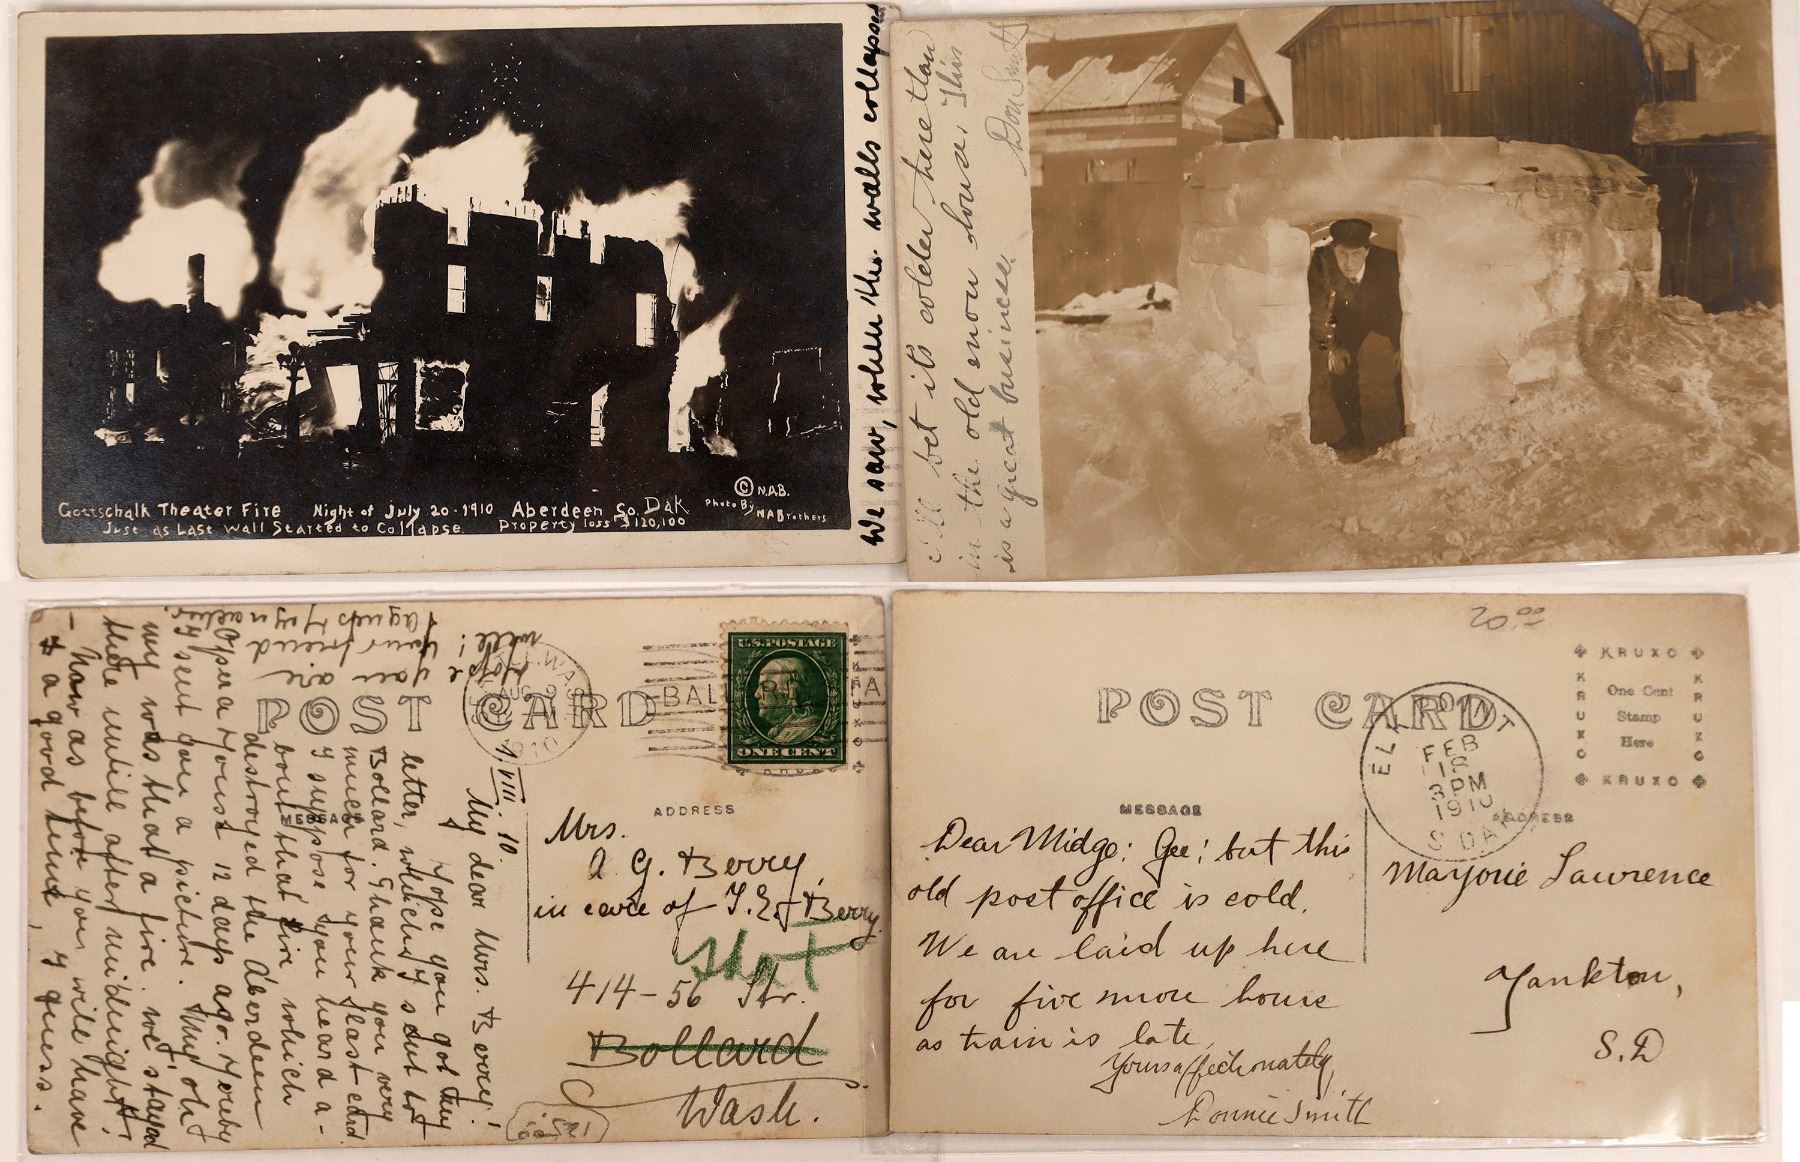 Gottschalk Theater Fire Night of July 20-1910 Aberdeen So. Dak
Just as Last Wall Started to Collapse. Property loss $120,100
© N.A.B.
Photo By
NABrothers
We saw, when the walls collapsed
I'll bet its colder here than
in the old snow house. This
is a great business.
Don Smith
1. VIII. 10.
My dear Mrs. Berry!
Hope you got my
letter, which I sent to
Bollard. Thank you very
much for your last card.
I suppose, you heard a-
bout that fire which
destroyed the Aberdeen
Opera House 12 days ago. Hereby
I sent you a picture. My oh!
my was that a fire. We stayed
there untill after midnight.
- Now as before you will have
a good time, I guess.
Hope you are
well!
Your friend
Agnes
POST CARD
MESSAGE
ADDRESS
WASH
AUG 9
1910
BAL
U.S. POSTAGE
ONE CENT
Mrs.
A. G. Berry,
in care of T. E. Berry
414-56 Str.
Bollard
Wash.
20.00
POST CARD
KRUXO
KRUXO
One Cent
Stamp
Here
KRUXO
KRUXO
ELK POINT
FEB
1 PM
1910
S DAK
MESSAGE
ADDRESS
Dear Midge: Gee! but this
old post office is cold.
We are laid up here
for five more hours
as train is late.
Yours affectionately,
Donnie Smith
Marjorie Lawrence
Yankton,
S.D